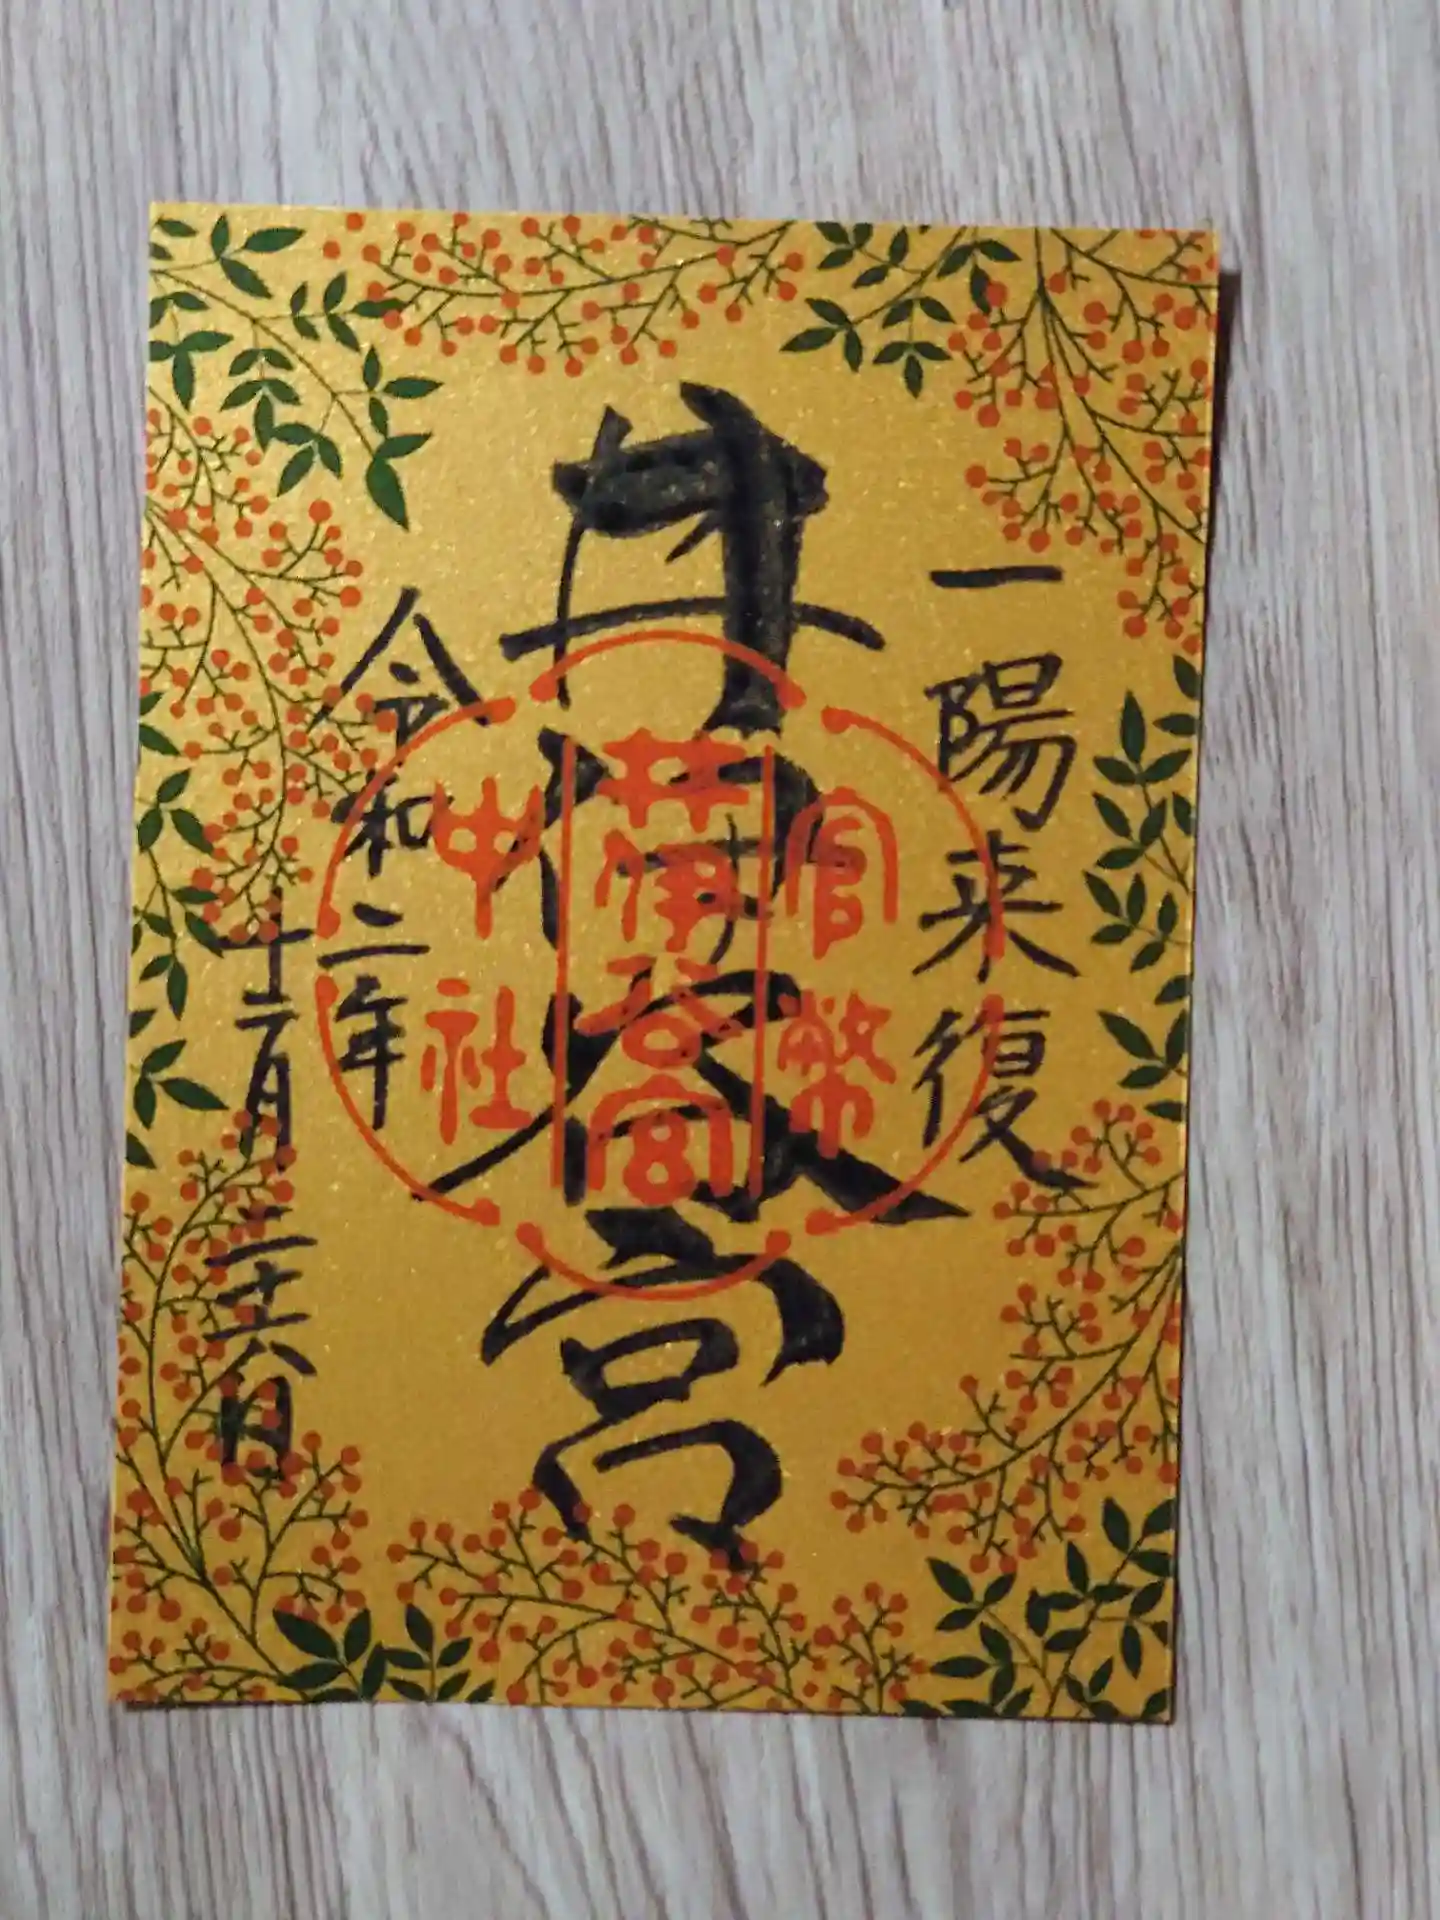 一陽来復
井伊谷宮
官幣
井伊谷宮
中社
令和二年
十二月二十六日